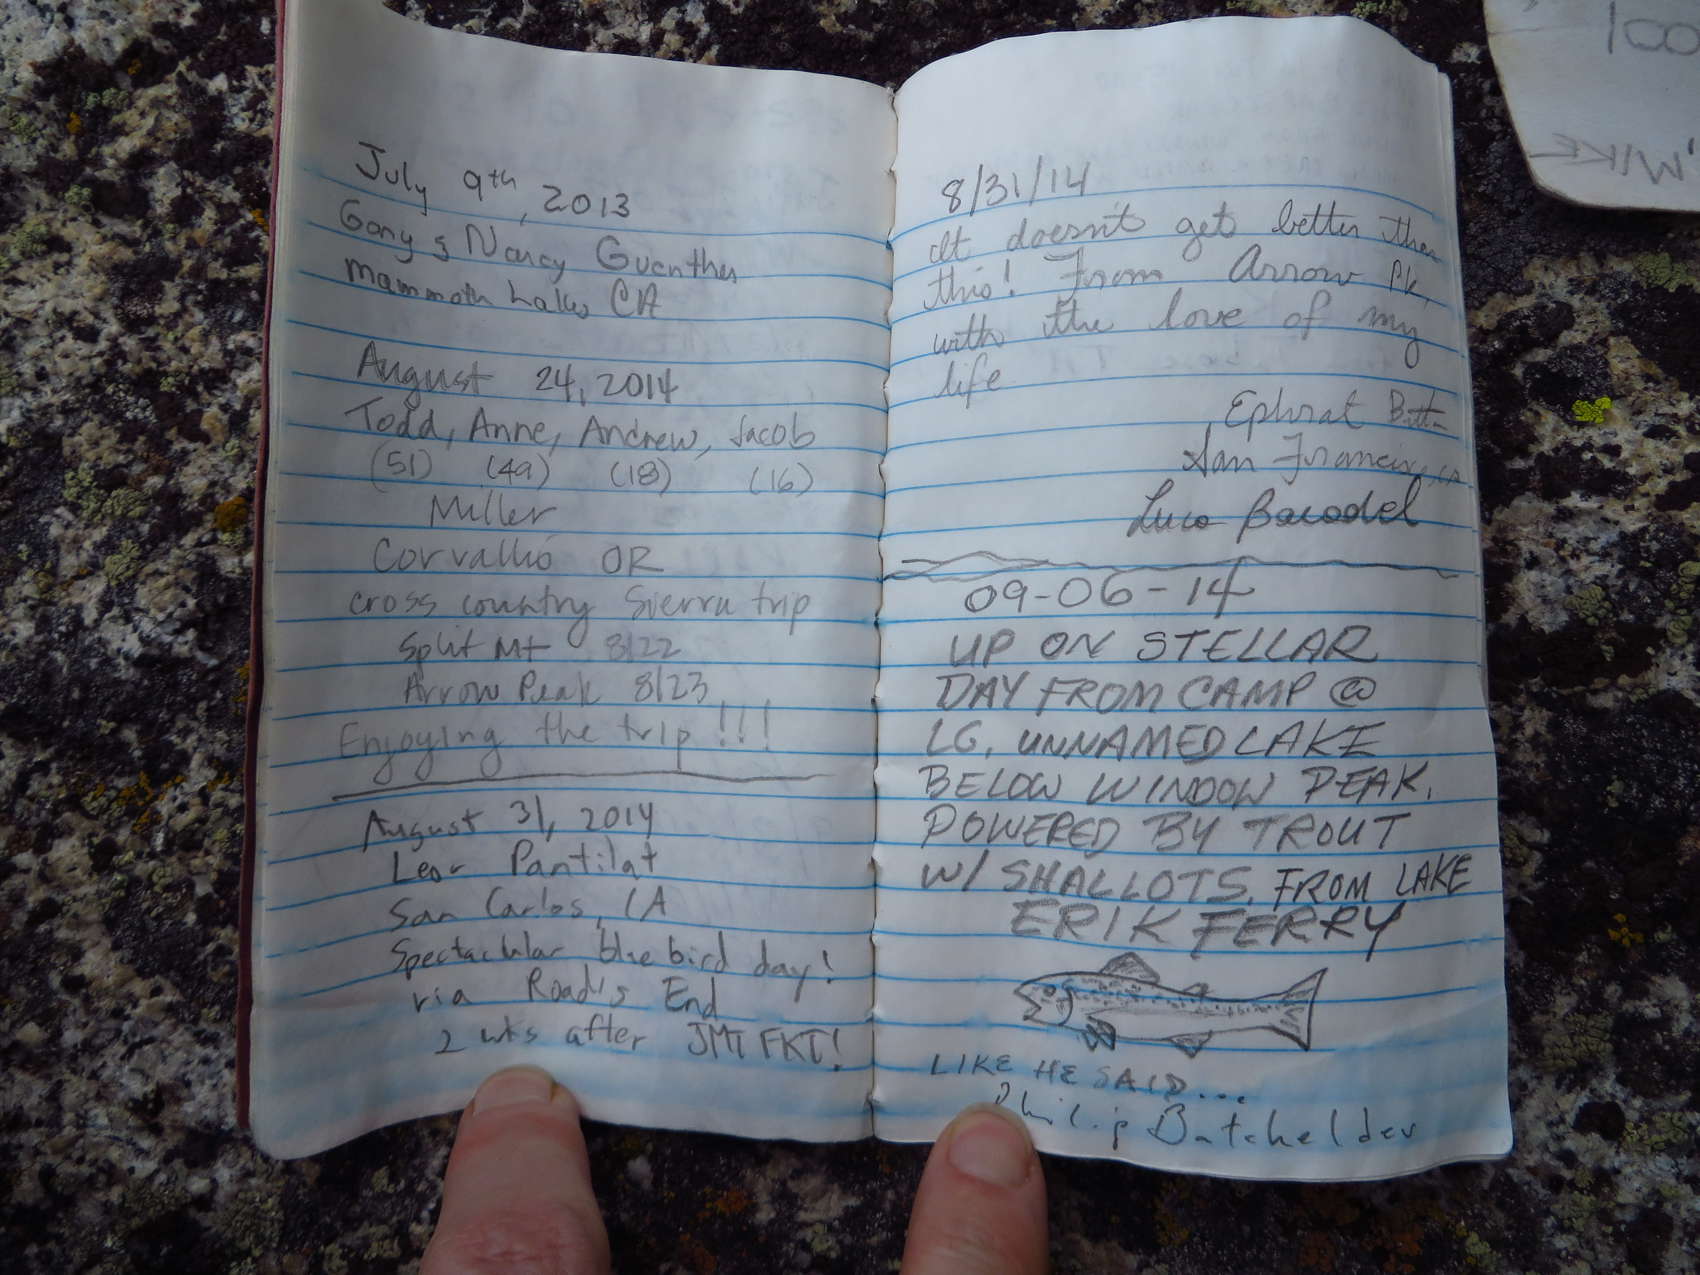 July 9th, 2013
Gary & Nancy Guenther
Mammoth Lakes CA
August 24, 2014
Todd, Anne, Andrew, Jacob
(51) (49) (18) (16)
Miller
Corvallis OR
cross country Sierra trip
Split Mt 8/22
Arrow Peak 8/23
Enjoying the trip!!!
August 31, 2014
Leor Pantilat
San Carlos, CA
Spectacular bluebird day!
via Road's End
2 wks after JMT FKT!
8/31/14
It doesn't get better then
this! From Arrow Pk,
with the love of my
life
Ephrat
San Francisco, CA
09-06-14
UP ON STELLAR
DAY FROM CAMP @
LG. UNNAMED LAKE
BELOW WINDOW PEAK.
POWERED BY TROUT
W/ SHALLOTS. FROM LAKE
ERIK FERRY
LIKE HE SAID...
Philip Batchelder
MIKE